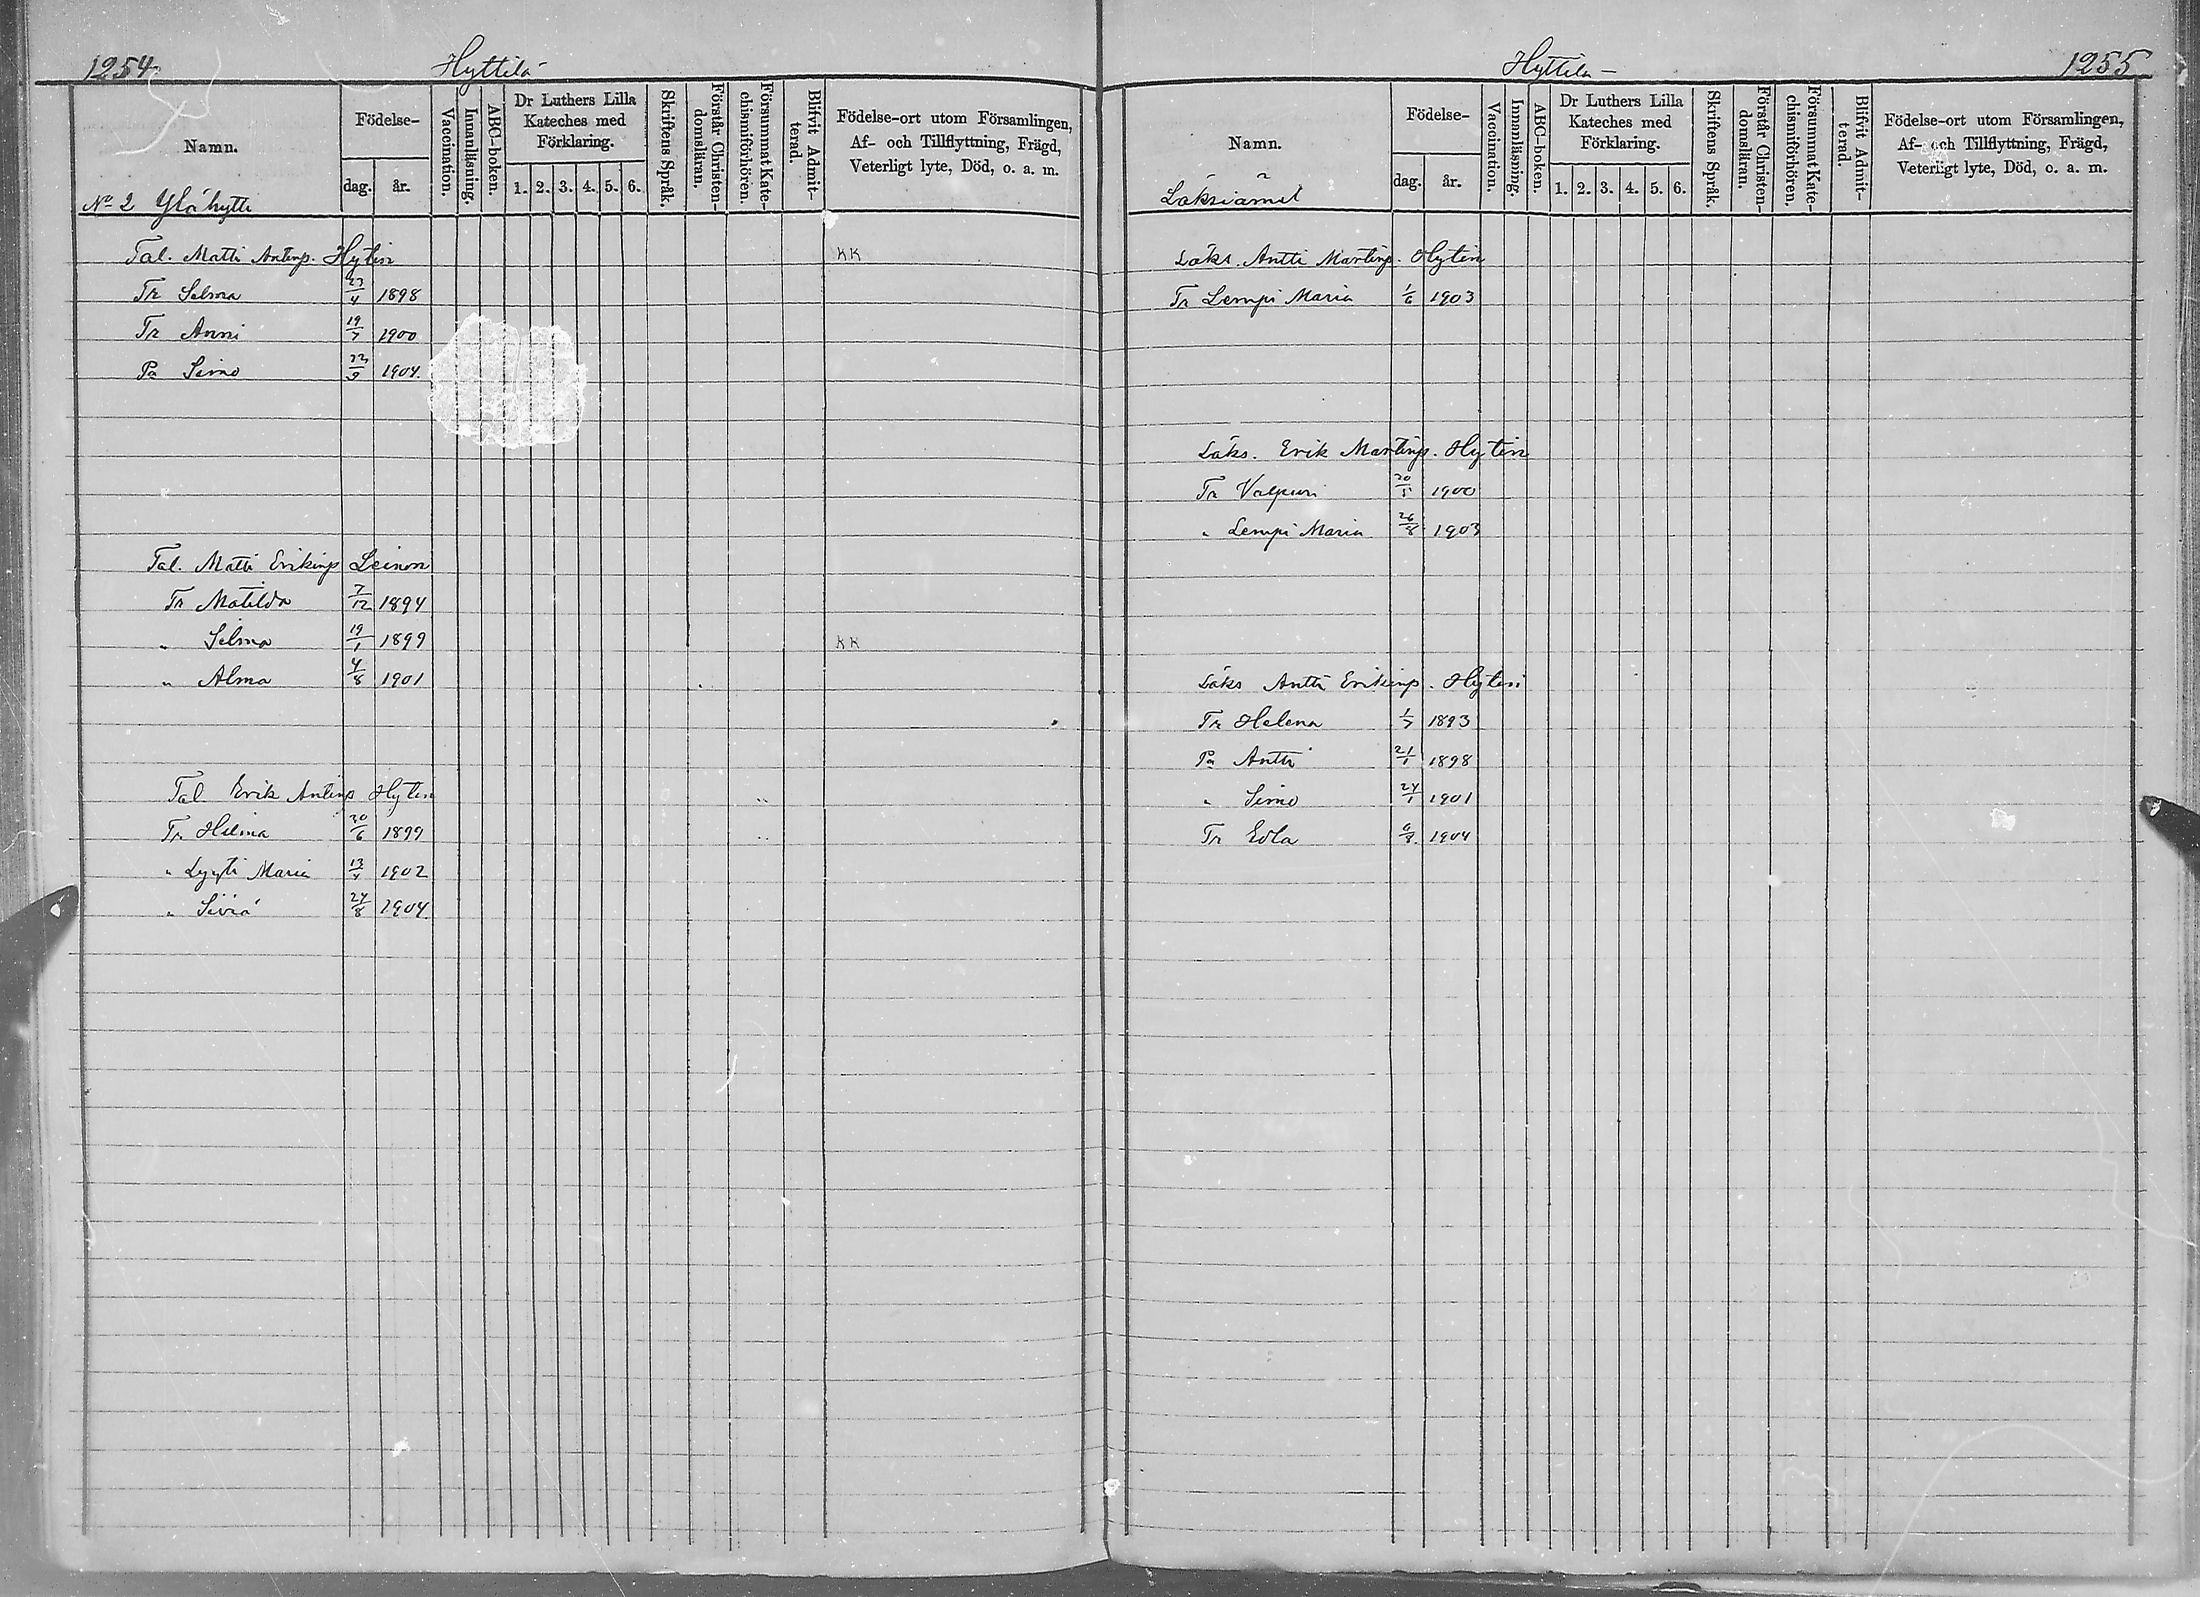 1254
Hyttilä
Namn.
Födelse-
dag.
år.
Vaccination.
Innanläsning.
ABC-boken.
Dr Luthers Lilla
Kateches med
Förklaring.
1. 2. 3. 4. 5. 6.
Skriftens Språk.
Förstår Christen-
domsläran.
Försummat Kate-
chismiförhören.
Blifvit Admit-
terad.
Födelse-ort utom Församlingen,
Af- och Tillflyttning, Frägd,
Veterligt lyte, Död, o. a. m.
No 2 Ylähytti
Tal. Matti Antinp. Hytin KK
Tr Selma 23/4 1898
Tr Anni 19/7 1900
Pa Simo 1904.
Tal. Matti Erikinp Leinon
Tr Matilda 7/12 1894
" Selma 19/1 1899 KK
" Alma 4/8 1901
Tal. Erik Antinp Hytin
Tr Hilma 30/6 1899
" Lyyti Maria 1902
" Siviä 24/8 1904
1255
Hyttilä
Namn.
Födelse-
dag.
år.
Vaccination.
Innanläsning.
ABC-boken.
Dr Luthers Lilla
Kateches med
Förklaring.
1. 2. 3. 4. 5. 6.
Skriftens Språk.
Förstår Christen-
domsläran.
Försummat Kate-
chismiförhören.
Blifvit Admit-
terad.
Födelse-ort utom Församlingen,
Af- och Tillflyttning, Frägd,
Veterligt lyte, Död, o. a. m.
Läks. Antti Martinp. Hytin
Tr Lempi Maria 1/6 1903
Läks. Erik Martinp. Hytin
Tr Valpuri 1900
" Lempi Maria 26/8 1903
Läks Antti Erikinp. Hytin
Tr Helena 1/7 1893
Pa Antti 21/1 1898
" Simo 24/1 1901
Tr Edla 1904